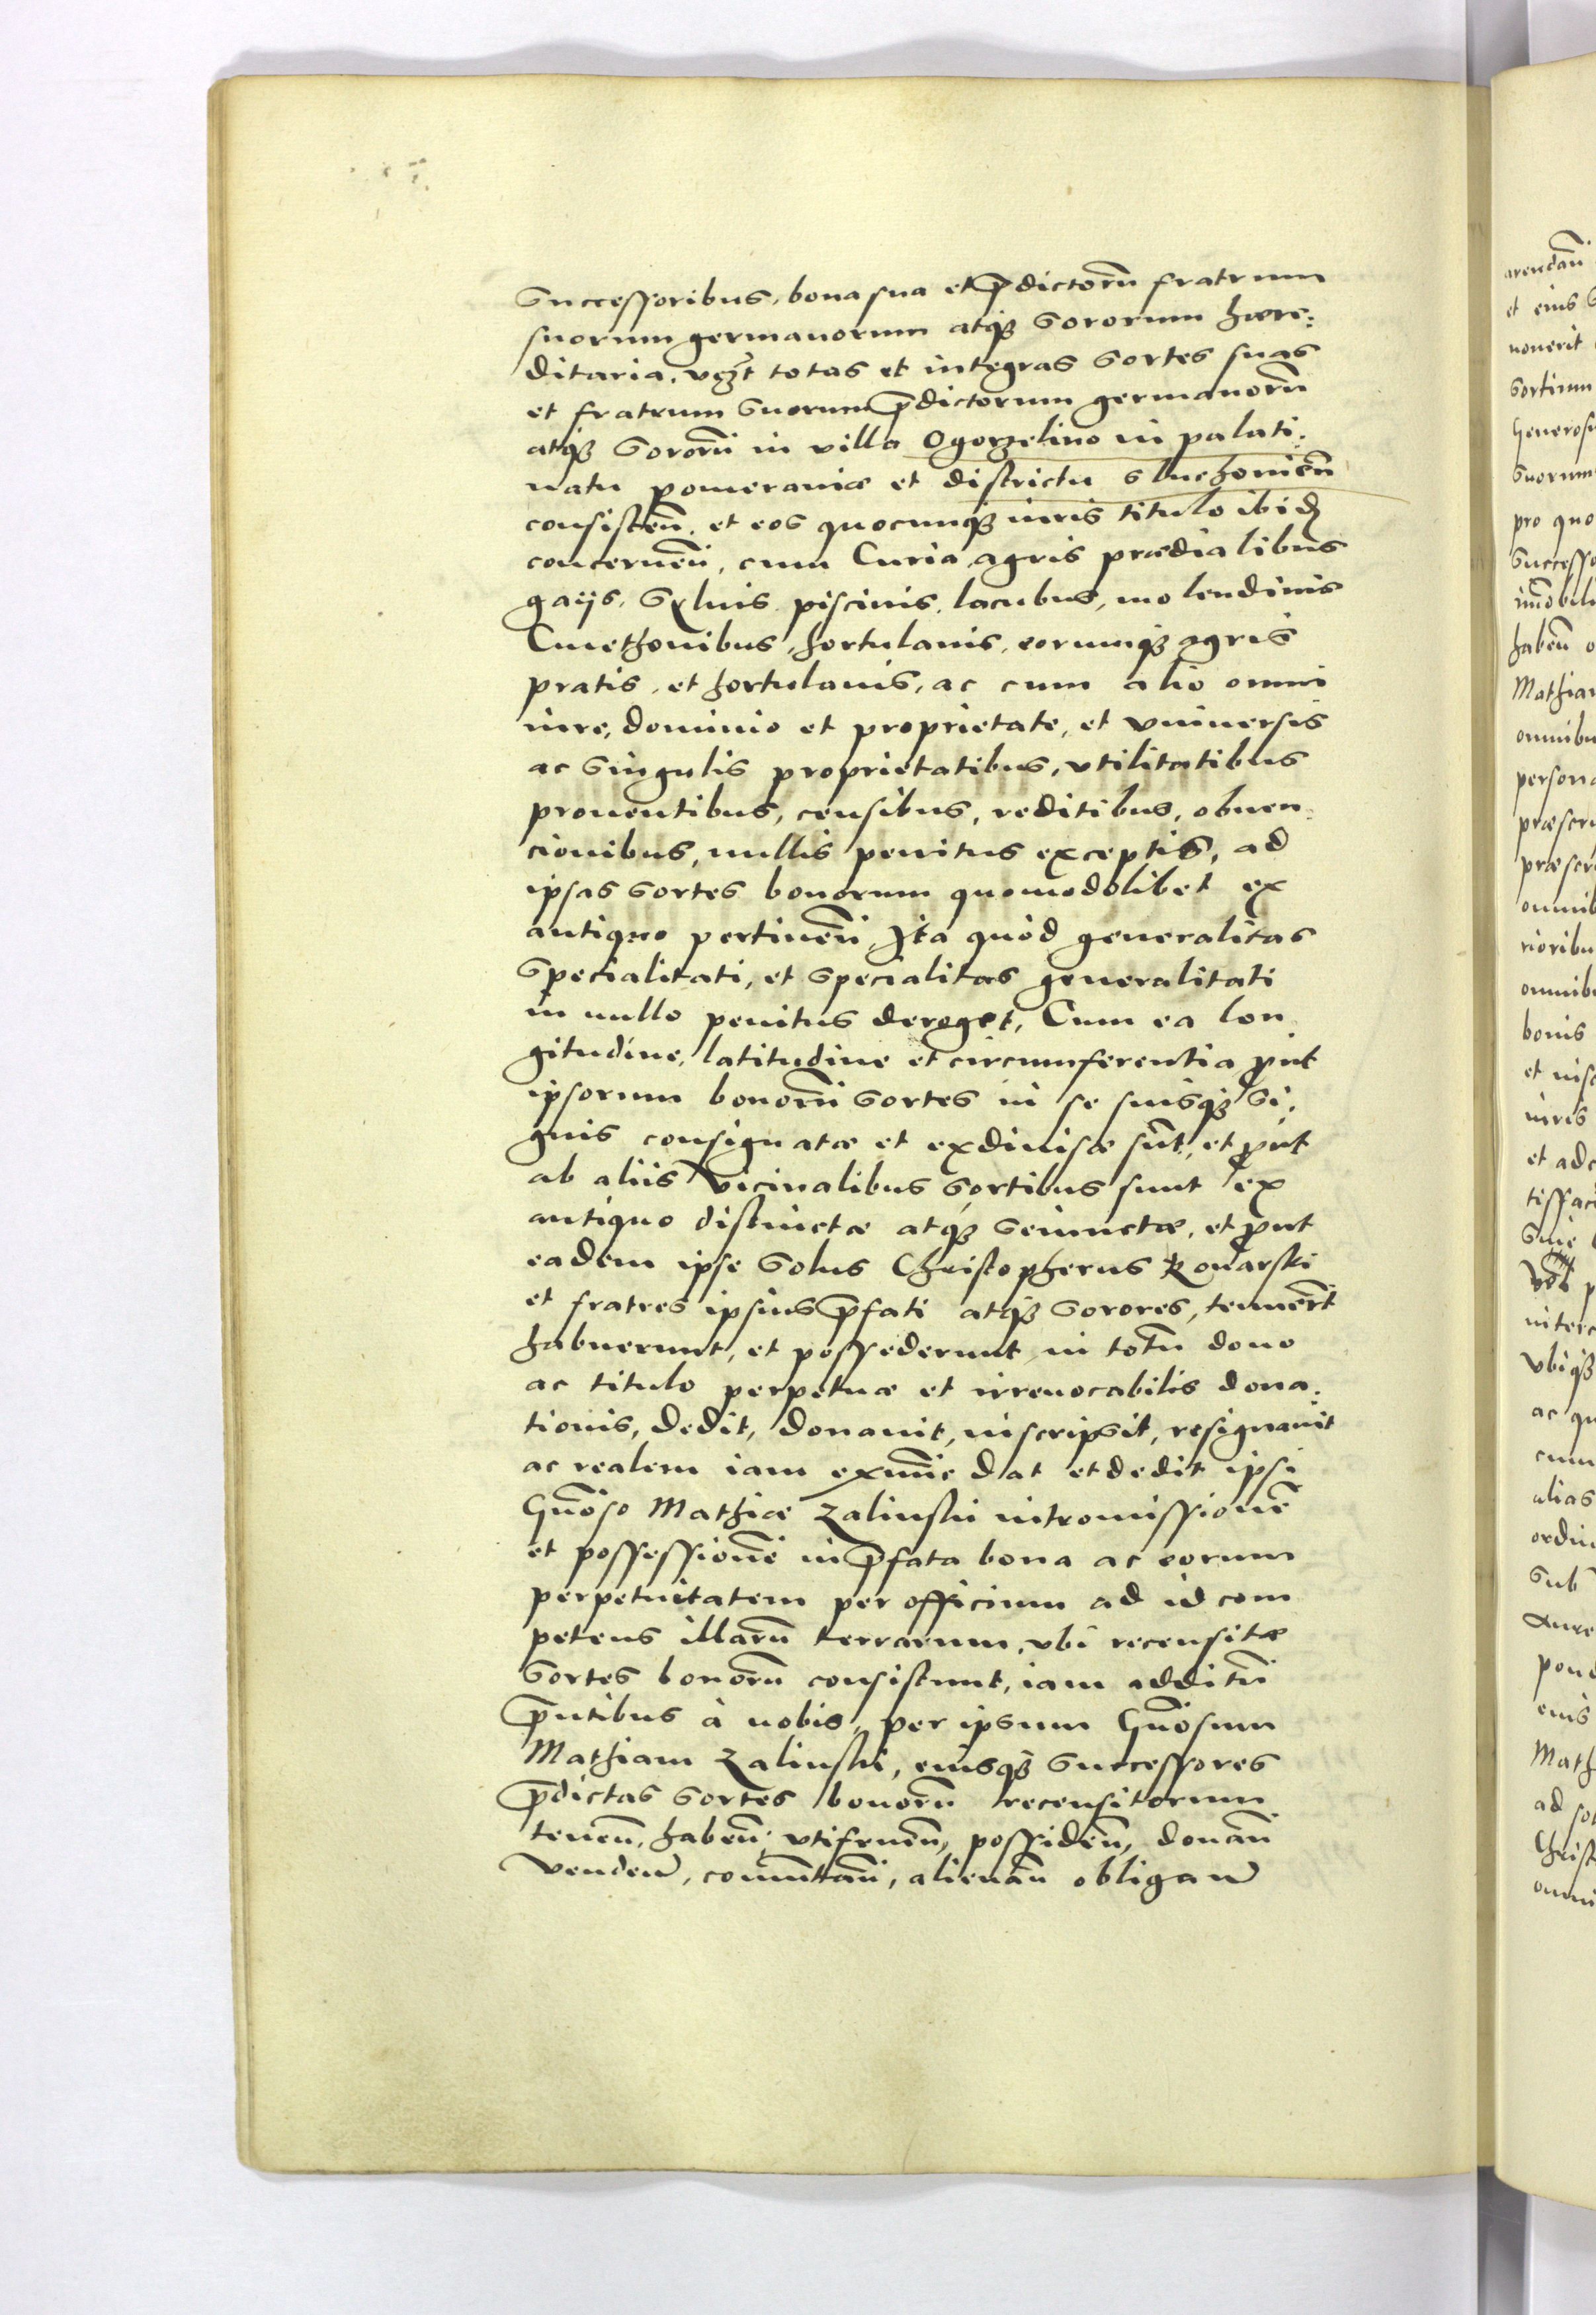 Successoribus, bona sua et p̄dictorũ fratrum
suorum germanorum atq́ꝫ Sororum hære:
ditaria, vꝫt totas et integras sortes suas
et fratrum Suorum p̄dictorum germanorũ
atq́ꝫ Sororũ in villa Ogorzelino in palati.
natu Pomeraniæ et districtu Sluchonień
consisteñ, et eos quocunq́ꝫ iuris titulo ibid
concerneñ, cum Curia, agris prædialibus
gaijs, Syluis piscinis, lacubus, molendinis
Cmethonibus, hortulanis, eorumq́ꝫ agris
pratis, et hortulanis, ac cum alio omni
iure, dominio et proprietate, et vniuersis
ac Singulis proprietatibus, vtilitatibus
prouentibus, censibus, reditibus, obuen:
cionibus, nullis penitus exceptis, ad
ipsas sortes bonorum quomodolibet ex
antiquo pertineñ, Ita quòd generalitas
Specialitati, et Specialitas generalitati
in nullo penitus deroget, Cum ea lon
gitudine, latitudine et circumferentia put
ipsorum bonorũ Sortes in se suisq́ꝫ Si.
gnis consignatæ et exdiuisæ sũt, et put
ab aliis vicinalibus Sortibus sunt ex
antiquo distinctæ atq́ꝫ Seiunctæ, et put
eadem ipse Solus Christopherus Kowarski
et fratres ipsius p̄fati atq́ꝫ Sorores, tenuer̃t
habuerunt, et possederunt in totũ dono
ac titulo perpetuæ et irreuocabilis dona.
tionis, dedit, donauit, inscripsit, resignauit
ac realem iam exnunc dat et dedit ipsi
Gñoso Mathiæ Zalinski intromissionẽ
et possessionẽ in p̄fata bona ac eorum
perpetuitatem per officium ad id com
petens illarũ terrarum, vbi recensitæ
Sortes bonorũ consistunt, iam additũ
p̄ntibus à nobis, per ipsum Gñosum
Mathiam Zalinski, eiusq́ꝫ Successores
p̄dictas Sortes bonorũ recensitorum
teneñ, habeñ, vtifrueñ, possideñ, donañ
venden, com̃utañ, alienañ obligan